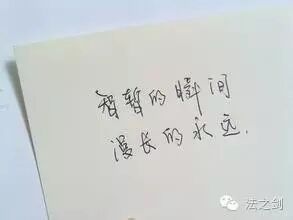 智暂的瞬间
漫长的永远.
法之剑